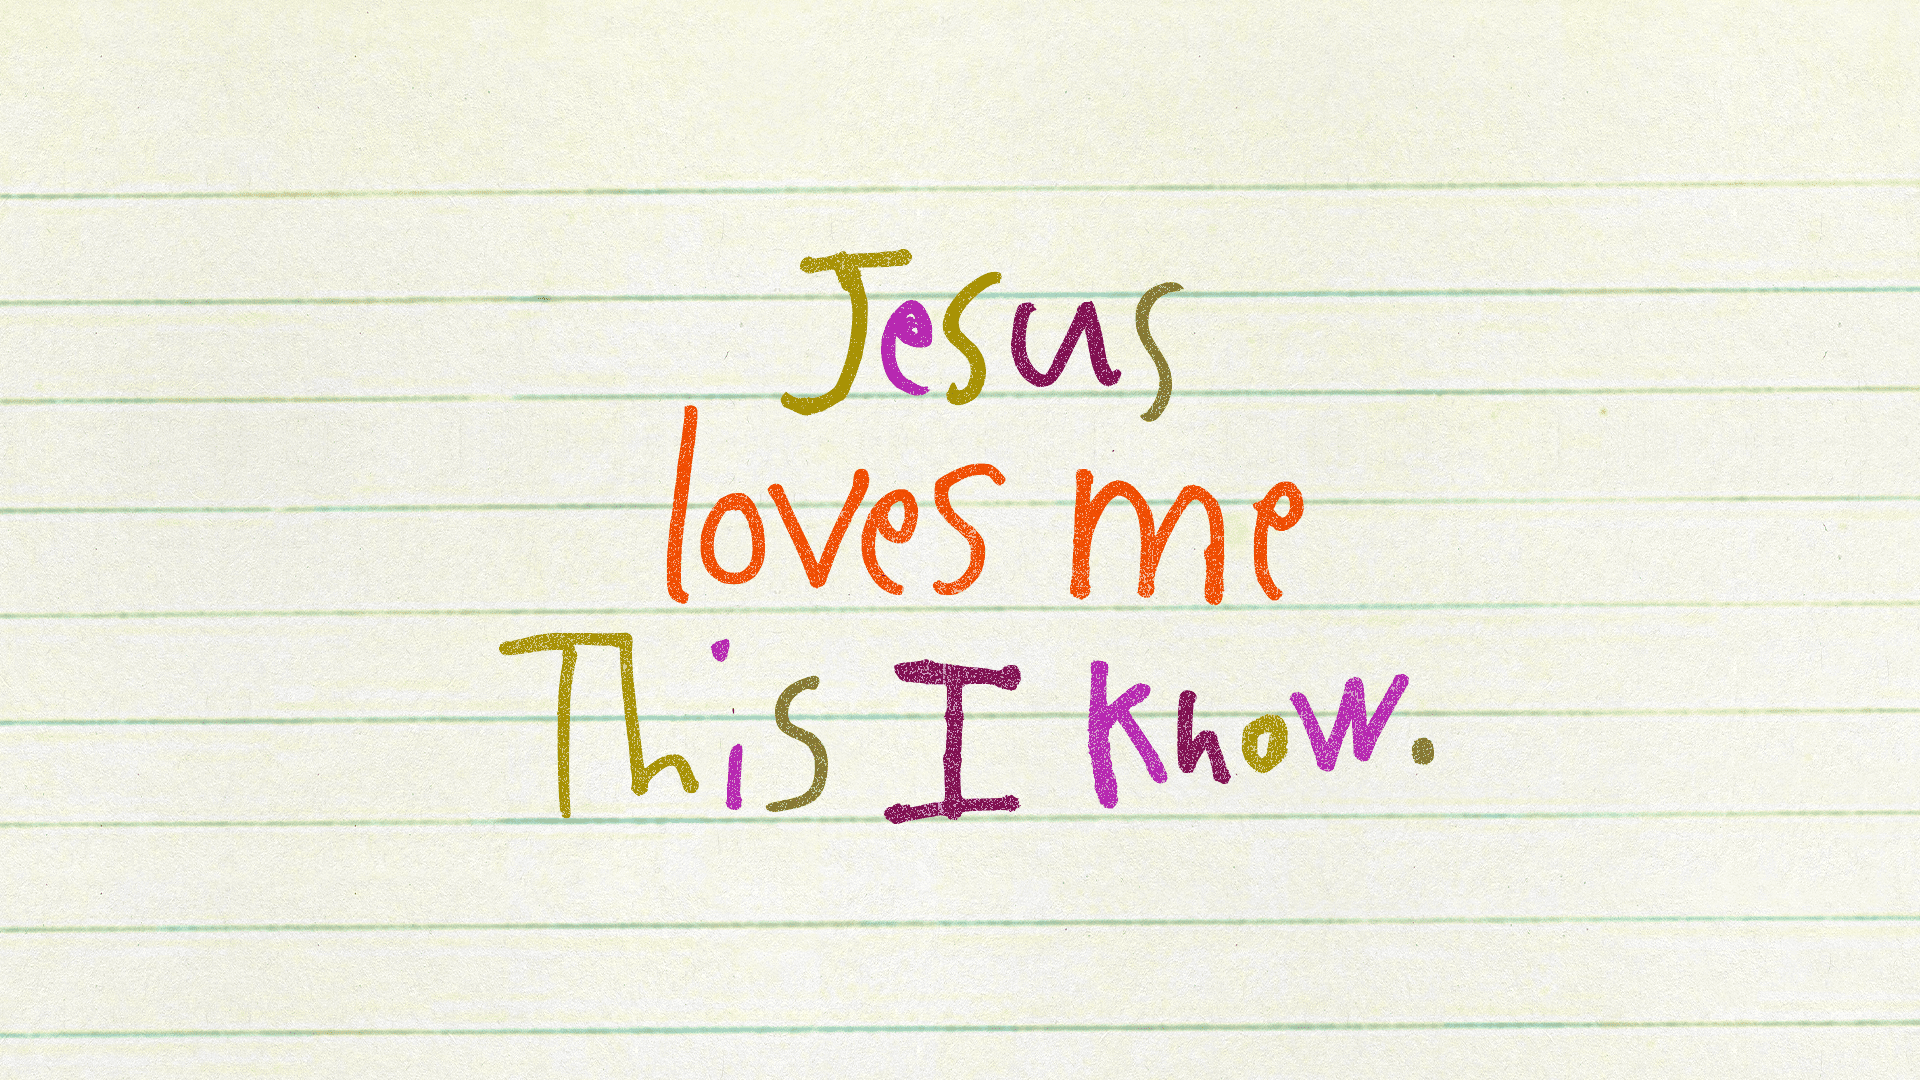 Jesus
loves me
This I Know.